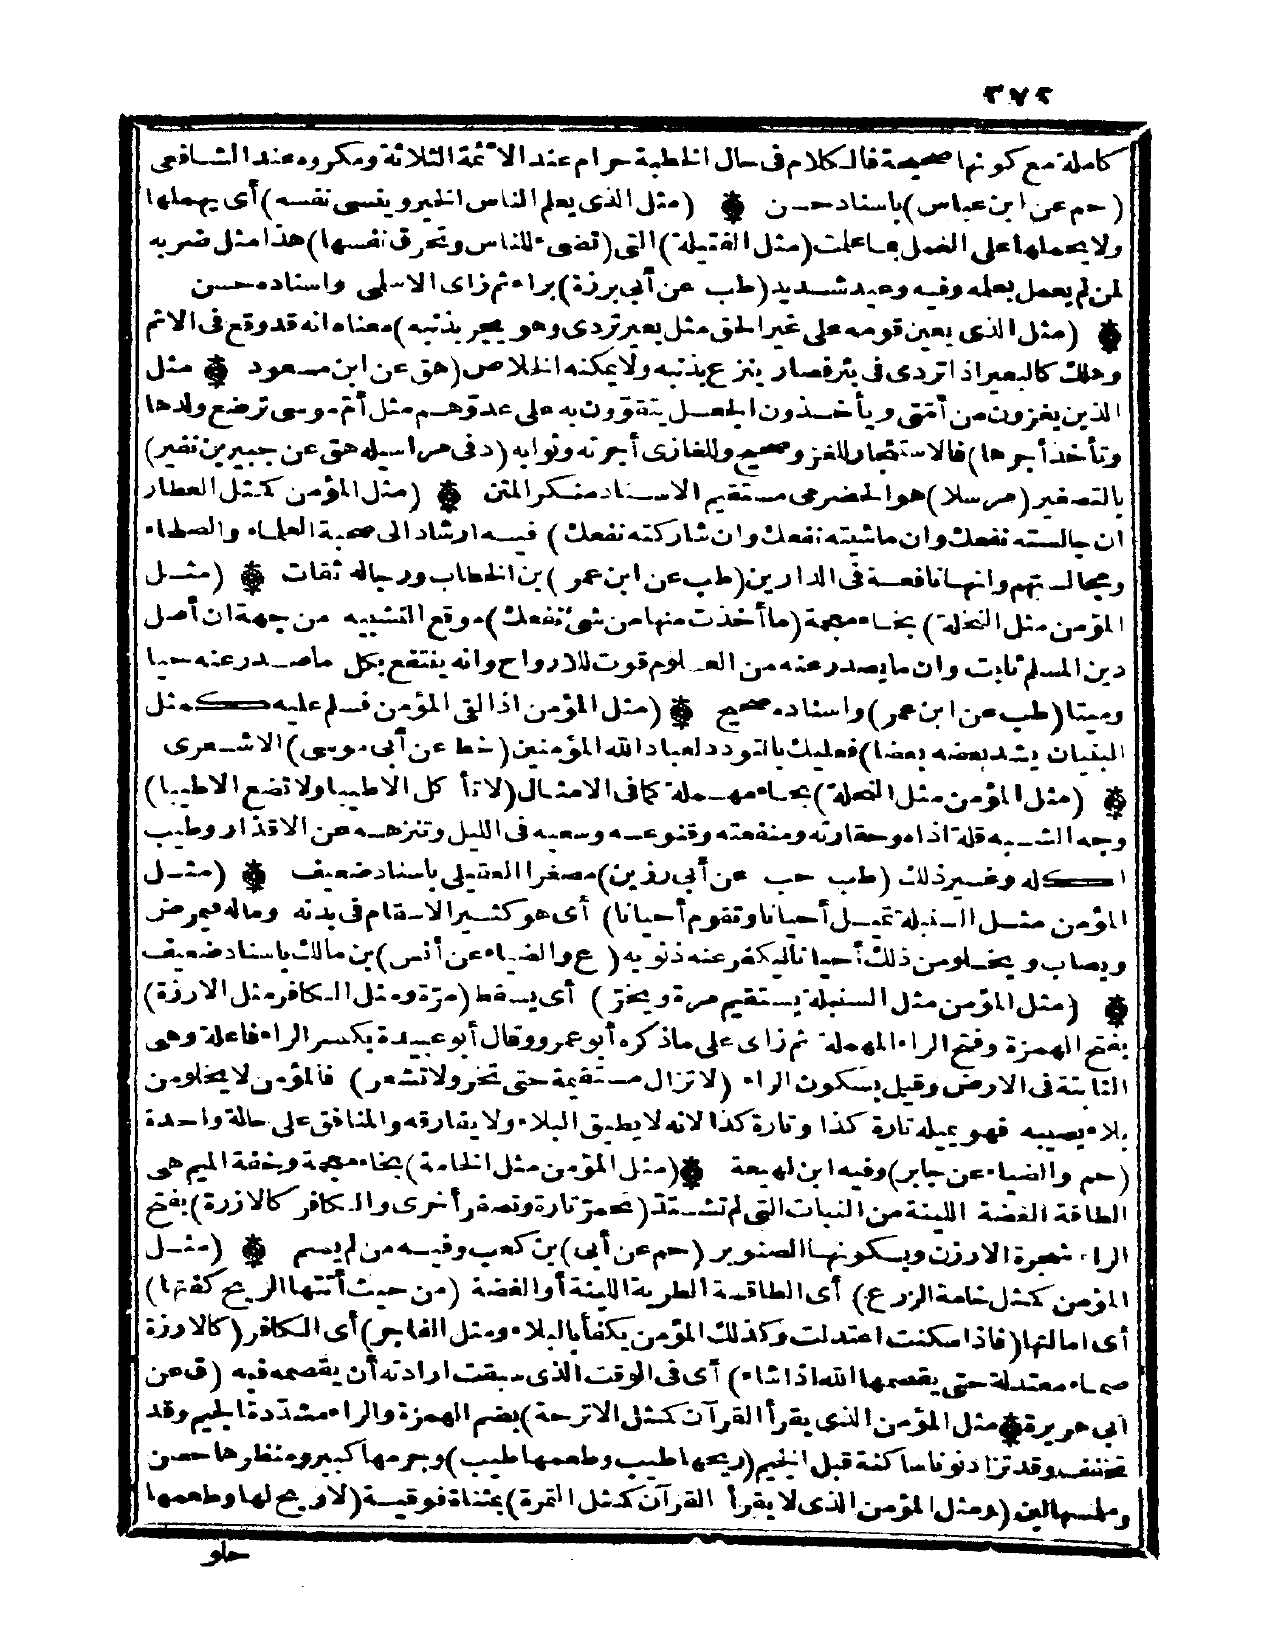 ٣٧٢
كاملة مع كونها صحيحة فالكلام فى حال الخطبة حرام عند الائمة الثلاثة ومكروه عند الشافعى
(حم عن ابن عباس) باسناد حسن ۞ (مثل الذى يعلم الناس الخير وينسى نفسه) أى يهملها
ولا يحملها على العمل بما علمت (مثل الفتيلة) التى (تضىء للناس وتحرق نفسها) هذا مثل ضربه
لمن لم يعمل بعلمه وفيه وعيد شديد (طب عن أبى برزة) براء ثم زاى الاسلمى واسناده حسن
۞ (مثل الذى يعين قومه على غير الحق مثل بعير تردى وهو يجر بذنبه) معناه انه قد وقع فى الاثم
وهلك كالبعير اذا تردى فى بئر فصار ينزع بذنبه ولا يمكنه الخلاص (هق عن ابن مسعود ۞ مثل
الذين يغزون من أمتى ويأخذون الجعل يتقوّون به على عدوّهم مثل أمّ موسى ترضع ولدها
وتأخذ أجرها) فالاستئجار للغزو صحيح وللغازى أجرته وثوابه (د فى مراسيله هق عن جبير بن نفير)
بالتصغير (مرسلا) هو الحضرمى مستقيم الاسناد منكر المتن ۞ (مثل المؤمن كمثل العطار
ان جالسته نفعك وان ماشيته نفعك وان شاركته نفعك) فيه ارشاد الى صحبة العلماء والصلحاء
ومجالستهم وانها نافعة فى الدارين (طب عن ابن عمر) بن الخطاب ورجاله ثقات ۞ (مثل
المؤمن مثل النخلة) بخاء معجمة (ما أخذت منها من شىء نفعك) موقع التشبيه من جهة ان أصل
دين المسلم ثابت وان ما يصدر عنه من العلوم قوت للارواح وانه ينتفع بكل ما صدر عنه حيا
وميتا (طب عن ابن عمر) واسناده صحيح ۞ (مثل المؤمن اذا لقى المؤمن فسلم عليه كمثل
البنيان يشد بعضه بعضا) فعليك بالتودد لعباد الله المؤمنين (خط عن أبى موسى) الاشعرى
۞ (مثل المؤمن مثل النحلة) بحاء مهملة كما فى الامثال (لا تأ كل الا طيبا ولا تضع الا طيبا)
وجه الشبه قلة اذاه وحقارته ومنفعته وقنوعه وسعيه فى الليل وتنزهه عن الاقذار وطيب
اكله وغير ذلك (طب حب عن أبى رزين) مصغرا العقيلى باسناد ضعيف ۞ (مثل
المؤمن مثل السنبلة تميل أحيانا وتقوم أحيانا) أى هو كثير الاسقام فى بدنه وماله فيمرض
ويصاب ويخلو من ذلك أحيانا ليكفر عنه ذنوبه (ع والضياء عن أنس) بن مالك باسناد ضعيف
۞ (مثل المؤمن مثل السنبلة يستقيم مرة ويخرّ) أى يسقط (مرّة ومثل الكافر مثل الارزة)
بفتح الهمزة وفتح الراء المهملة ثم زاى على ما ذكره أبو عمرو وقال أبو عبيدة بكسر الراء فاعلة وهى
الثابتة فى الارض وقيل بسكون الراء (لا تزال مستقيمة حتى تخر ولا تشعر) فالمؤمن لا يخلو من
بلاء يصيبه فهو يميله تارة كذا وتارة كذا لانه لا يطيق البلاء ولا يفارقه والمنافق على حالة واحدة
(حم والضياء عن جابر) وفيه ابن لهيعة ۞ (مثل المؤمن مثل الخامة) بخاء معجمة وخفة الميم هى
الطاقة الغضة اللينة من النبات التى لم تشتد (تحمرّ تارة وتصفر أخرى والكافر كالارزة) بفتح
الراء شجرة الارزن وبسكونها الصنوبر (حم عن أبى) بن كعب وفيه من لم يسم ۞ (مثل
المؤمن كمثل خامة الزرع) أى الطاقة الطرية اللينة أو الغضة (من حيث أتتها الريح كفتها)
أى امالتها (فاذا سكنت اعتدلت وكذلك المؤمن يكفأ بالبلاء ومثل الفاجر) أى الكافر (كالارزة
صماء معتدلة حتى يقصمها الله اذا شاء) أى فى الوقت الذى سبقت ارادته أن يقصمه فيه (ق عن
أبى هريرة ۞ مثل المؤمن الذى يقرأ القرآن كمثل الاترجة) بضم الهمزة والراء مشدّدة الجيم وقد
تخفف وقد تزاد نونا ساكنة قبل الجيم (ريحها طيب وطعمها طيب) وجرمها كبير ومنظرها حسن
وملمسها لين (ومثل المؤمن الذى لا يقرأ القرآن كمثل التمرة) بمثناة فوقية (لا ريح لها وطعمها
حلو